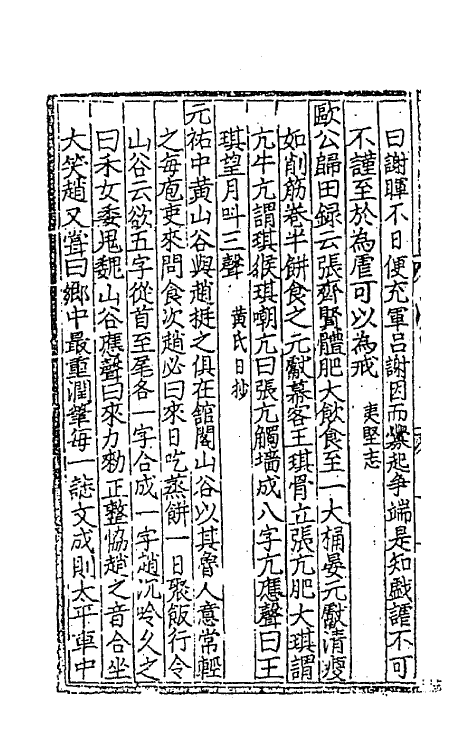 曰謝暉不日便充軍吕謝因而釁起争端是知戲謔不可
不謹至於為虐可以為戒 夷堅志
歐公歸田録云張齊賢體肥大飲食至一大桶晏元獻清瘦
如削筋卷半餅食之元獻幕客王琪骨立張亢肥大琪謂
亢牛亢謂琪猴琪嘲亢曰張亢觸墻成八字亢應聲曰王
琪望月呌三聲 黄氏日抄
元祐中黄山谷與趙挺之俱在館閣山谷以其魯人意常輕
之每庖吏來問食次趙必曰來日吃蒸餅一日聚飯行令
山谷云欲五字從首至尾各一字合成一字趙沉吟久之
曰禾女委鬼魏山谷應聲曰來力勑正整恊趙之音合坐
大笑趙又嘗曰鄉中最重潤筆每一誌文成則太平車中